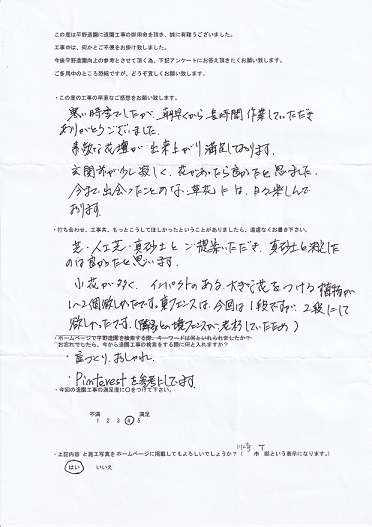 この度は平野造園に造園工事の御用命を頂き、誠に有難うございました。
工事中は、何かとご不便をお掛け致しました。
今後平野造園向上の参考とさせて頂く為、下記アンケートにお答え頂きたくお願い致します。
ご多用中のところ恐縮ですが、どうぞ宜しくお願い致します。
・この度の工事の率直なご感想をお願い致します。
寒い時季でしたが、朝早くから長時間作業していただき
ありがとうございました。
素敵な花壇が出来上がり満足しております。
玄関前が少し寂しく、花があったら良かったと思いました。
今まで出会ったことのない草花には、日々楽しんで
おります。
・打ち合わせ、工事共、もっとこうしてほしかったということがありましたら、遠慮なくお書き下さい。
芝・人工芝・真砂土とご提案いただき、真砂土に決定した
のは良かったと思います。
小花が多く、インパクトのある大きな花をつける植物が
1～2個欲しかったです。裏フェンスは、今回は1段ですが、2段にして
欲しかったです。(隣家との境フェンスが老朽していたため)
・ホームページで平野造園を検索する際、キーワードは何といれられましたか?
お忘れでしたら、今から造園工事の検索をする際に何と入れますか?
・庭づくり、おしゃれ
・Pinterestを参考としてます。
・今回の造園工事の満足度に○をつけて下さい。
不満 満足
1 2 3 4 5
・上記内容と施工写真をホームページに掲載してもよろしいでしょうか?(川崎市 T 邸という表示になります。)
はい いいえ